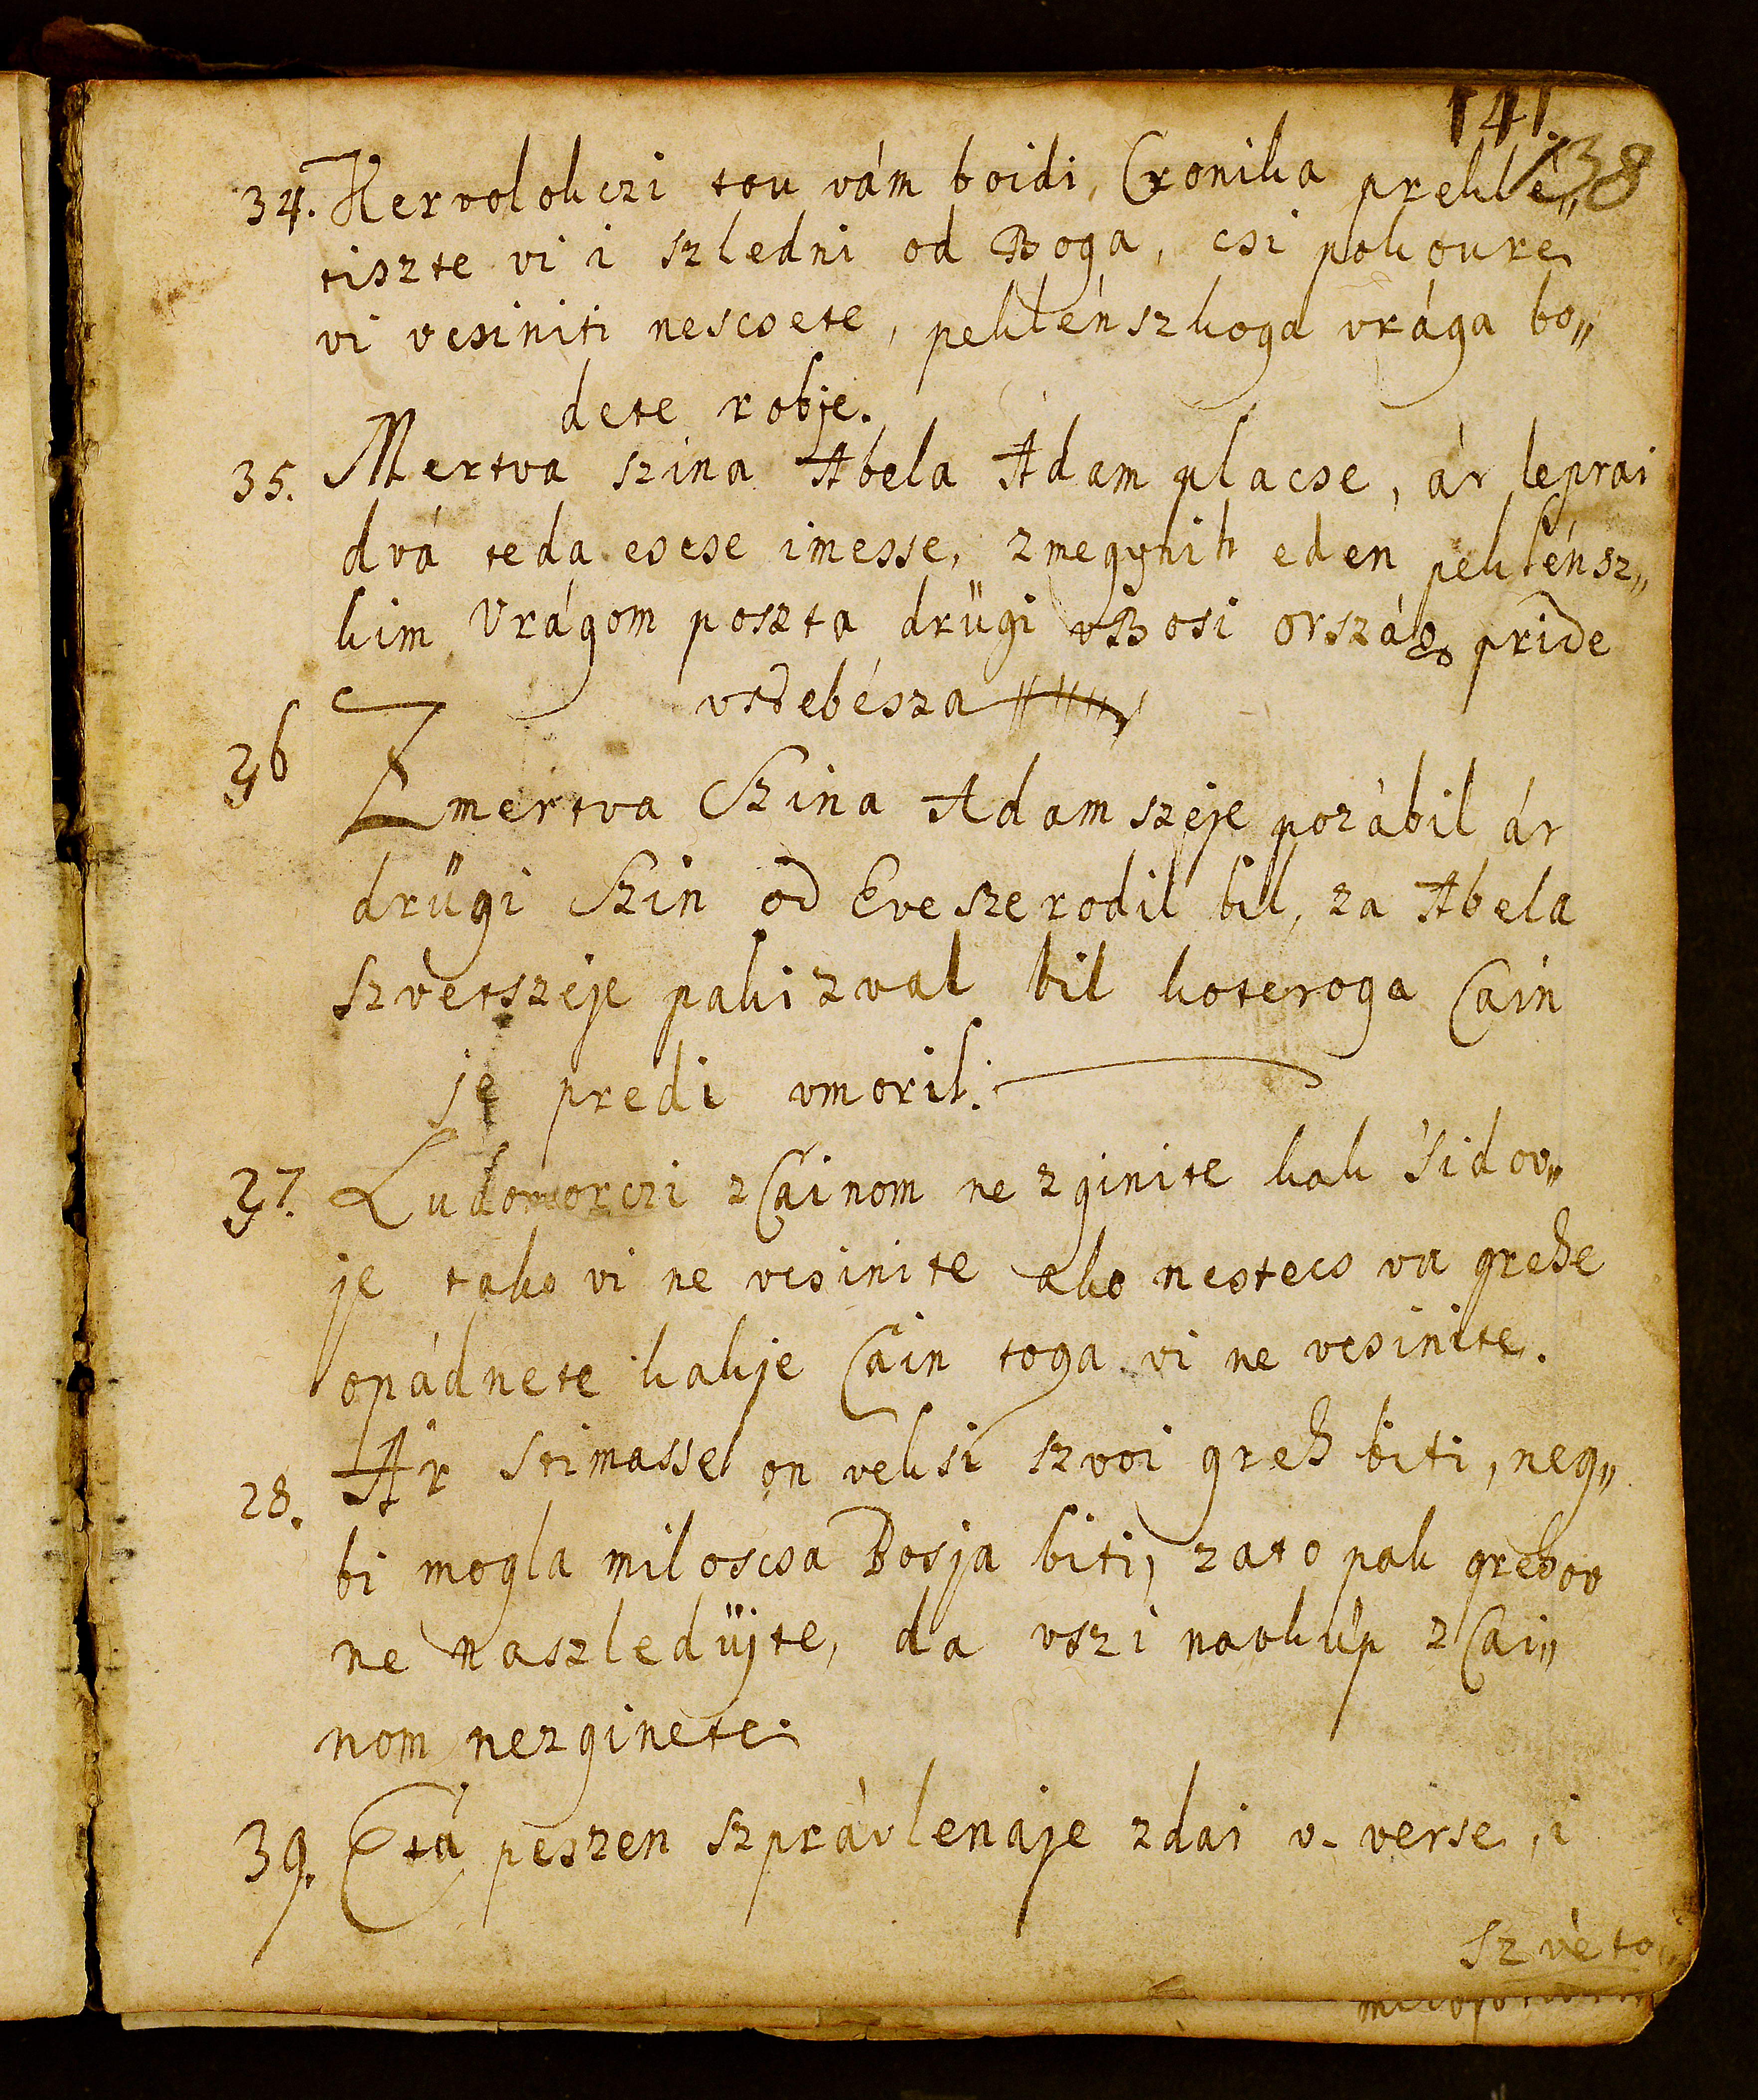 141.
138
34. Kervolokczi tou vám boidi, Cronika preklé„
tiszte vi i szledni od Boga, csi pokoure
vi vcsiniti nescsete, peklénszkoga vrága bo„
dete robje.
35. Mertva szina Abela Adam placse, ár leprai
dvá teda escse imesse, zmegynih eden peklénsz„
kim Vrágom poszta drügi vBosiország pride
vnebésza
36 Zmertva Szina Adam szeje pozábil ár
drügi Szin od Eve szerodil bil, za Abela
szvetszeje paki zval bil koteroga Cain
je predi vmoril.
37. Ludomorczi zCainom ne zginite kak Sidov„
je tako vi ne vcsinite ako nestecs vu grehe
opádnete kakje Cain toga vi ne vcsinite.
28. Ár stimasse on veksi szvoi greh biti, neg„
bi mogla miloscsa Bosja biti, zato pak grehov
ne naszledüjte, da vszi navkúp zCai„
nom nezginete.
39. Eta peszen szprávlenaje zdai v- verse, i
szvéto„